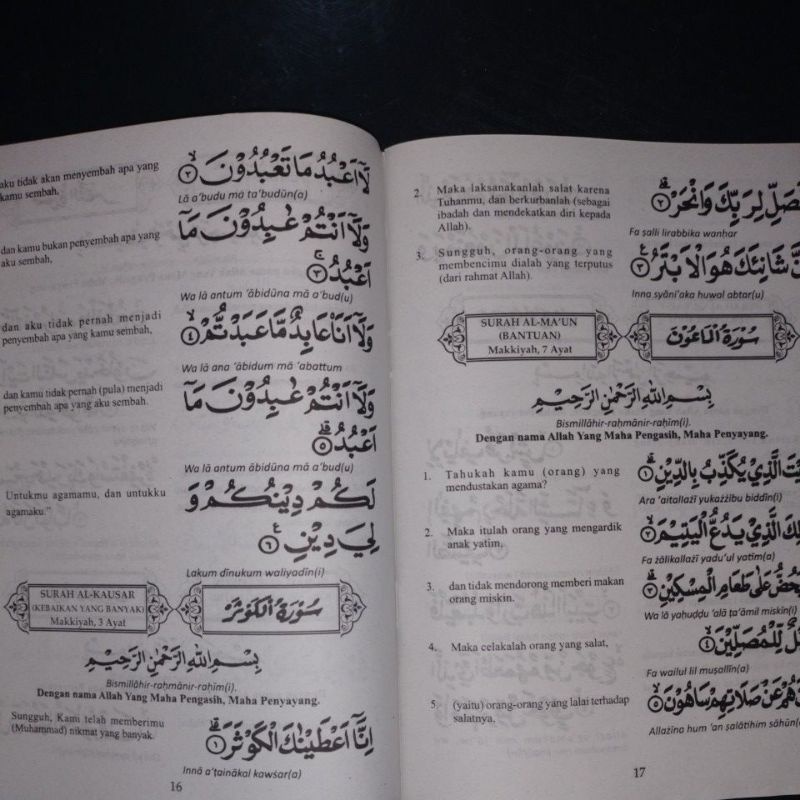 aku tidak akan menyembah apa yang
kamu sembah,
لَآ اَعْبُدُ مَا تَعْبُدُوْنَۙ ٢
Lā a'budu mā ta'budūn(a)
dan kamu bukan penyembah apa yang
aku sembah,
وَلَآ اَنْتُمْ عٰبِدُوْنَ مَآ
اَعْبُدُۚ ٣
Wa lā antum 'ābidūna mā a'bud(u)
dan aku tidak pernah menjadi
penyembah apa yang kamu sembah,
وَلَآ اَنَا۠ عَابِدٌ مَّا عَبَدْتُّمْۙ ٤
Wa lā ana 'ābidum mā 'abattum
dan kamu tidak pernah (pula) menjadi
penyembah apa yang aku sembah.
وَلَآ اَنْتُمْ عٰبِدُوْنَ مَآ
اَعْبُدُۗ ٥
Wa lā antum ābidūna mā a'bud(u)
Untukmu agamamu, dan untukku
agamaku."
لَكُمْ دِيْنُكُمْ وَ
لِيَ دِيْنِ ٦
Lakum dīnukum waliyadīn(i)
SURAH AL-KAUSAR
(KEBAIKAN YANG BANYAK)
Makkiyah, 3 Ayat
سُوْرَةُ الْكَوْثَرْ
بِسْمِ اللهِ الرَّحْمٰنِ الرَّحِيْمِ
Bismillāhir-raḥmānir-raḥīm(i).
Dengan nama Allah Yang Maha Pengasih, Maha Penyayang.
Sungguh, Kami telah memberimu
(Muhammad) nikmat yang banyak.
اِنَّآ اَعْطَيْنٰكَ الْكَوْثَرَۗ ١
Innā a'ṭainākal kawśar(a)
16
2. Maka laksanakanlah salat karena
Tuhanmu, dan berkurbanlah (sebagai
ibadah dan mendekatkan diri kepada
Allah).
فَصَلِّ لِرَبِّكَ وَانْحَرْۗ ٢
Fa ṣalli lirabbika wanḥar
3. Sungguh, orang-orang yang
membencimu dialah yang terputus
(dari rahmat Allah).
نَّ شَانِئَكَ هُوَ الْاَبْتَرُ ٣
Inna syāni'aka huwal abtar(u)
SURAH AL-MA'UN
(BANTUAN)
Makkiyah, 7 Ayat
سُوْرَةُ الْمَاعُوْنَ
بِسْمِ اللهِ الرَّحْمٰنِ الرَّحِيْمِ
Bismillāhir-raḥmānir-raḥīm(i).
Dengan nama Allah Yang Maha Pengasih, Maha Penyayang.
1. Tahukah kamu (orang) yang
mendustakan agama?
يْتَ الَّذِيْ يُكَذِّبُ بِالدِّيْنِۗ ١
Ara 'aitallażī yukażżibu biddīn(i)
2. Maka itulah orang yang mengardik
anak yatim,
لِكَ الَّذِيْ يَدُعُّ الْيَتِيْمَۙ ٢
Fa żālikallażī yadu'ul yatīm(a)
3. dan tidak mendorong memberi makan
orang miskin.
يَحُضُّ عَلٰى طَعَامِ الْمِسْكِيْنِۗ ٣
Wa lā yaḥuḍḍu 'alā ṭa'āmil miskīn(i)
4. Maka celakalah orang yang salat,
يْلٌ لِّلْمُصَلِّيْنَۙ ٤
Fa wailul lil muṣallīn(a)
5. (yaitu) orang-orang yang lalai terhadap
salatnya,
هُمْ عَنْ صَلَاتِهِمْ سَاهُوْنَۙ ٥
Allażīna hum 'an ṣalātihim sāhūn(a)
17